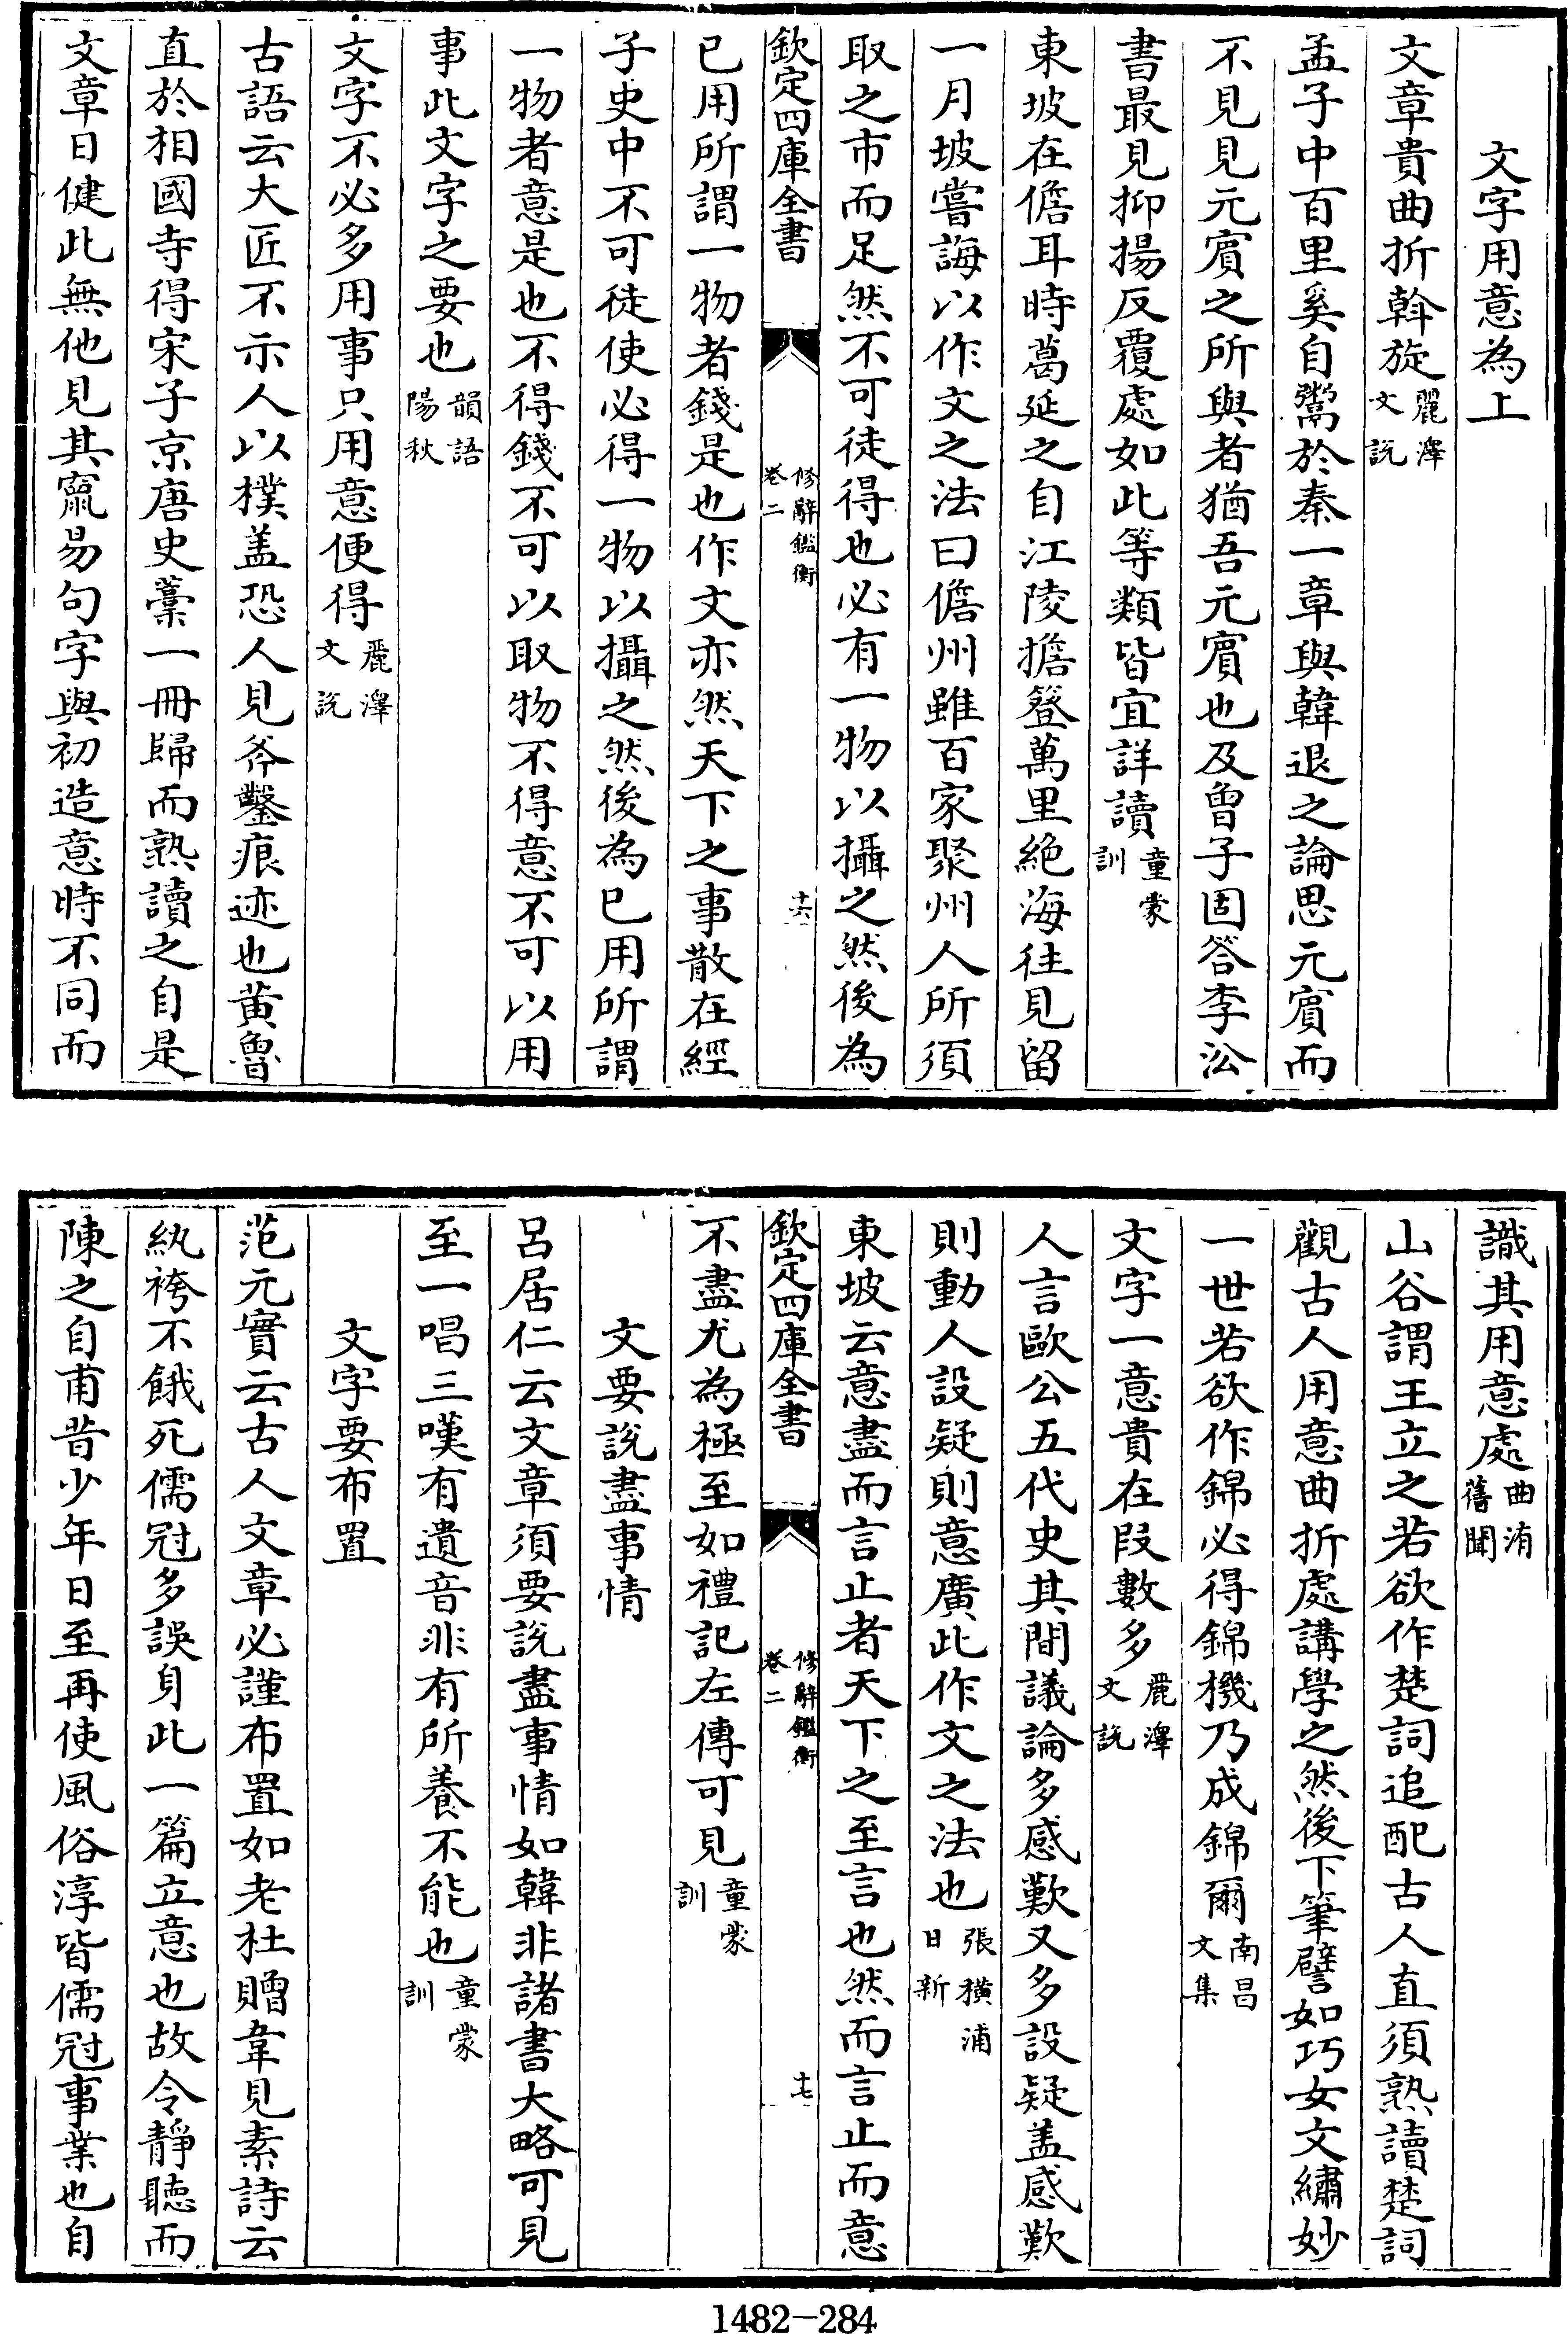 文字用意為上
文章貴曲折斡旋麗澤文説
孟子中百里奚自鬻於秦一章與韓退之論思元賓而
不見見元賓之所與者猶吾元賓也及曾子固答李沿
書最見抑揚反覆處如此等類皆宜詳讀童蒙訓
東坡在儋耳時葛延之自江陵擔簦萬里絶海往見留
一月坡嘗誨以作文之法曰儋州雖百家聚州人所須
取之市而足然不可徒得也必有一物以攝之然後為
欽定四庫全書
修辭鑑衡
卷二
十六
已用所謂一物者錢是也作文亦然天下之事散在經
子史中不可徒使必得一物以攝之然後為已用所謂
一物者意是也不得錢不可以取物不得意不可以用
事此文字之要也韻語陽秋
文字不必多用事只用意便得麗澤文説
古語云大匠不示人以樸盖恐人見斧鑿痕迹也黄魯
直於相國寺得宋子京唐史藁一冊歸而熟讀之自是
文章日健此無他見其竄易句字與初造意時不同而
識其用意處曲洧舊聞
山谷謂王立之若欲作楚詞追配古人直須熟讀楚詞
觀古人用意曲折處講學之然後下筆譬如巧女文繡妙
一世若欲作錦必得錦機乃成錦爾南昌文集
文字一意貴在段數多麗澤文説
人言歐公五代史其間議論多感歎又多設疑盖感歎
則動人設疑則意廣此作文之法也張横浦日新
東坡云意盡而言止者天下之至言也然而言止而意
欽定四庫全書
修辭鑑衡
卷二
十七
不盡尤為極至如禮記左傳可見童蒙訓
文要説盡事情
呂居仁云文章須要説盡事情如韓非諸書大略可見
至一唱三嘆有遺音非有所養不能也童蒙訓
文字要布置
范元實云古人文章必謹布置如老杜贈韋見素詩云
紈袴不餓死儒冠多誤身此一篇立意也故令靜聽而
陳之自甫昔少年日至再使風俗淳皆儒冠事業也自
1482-284